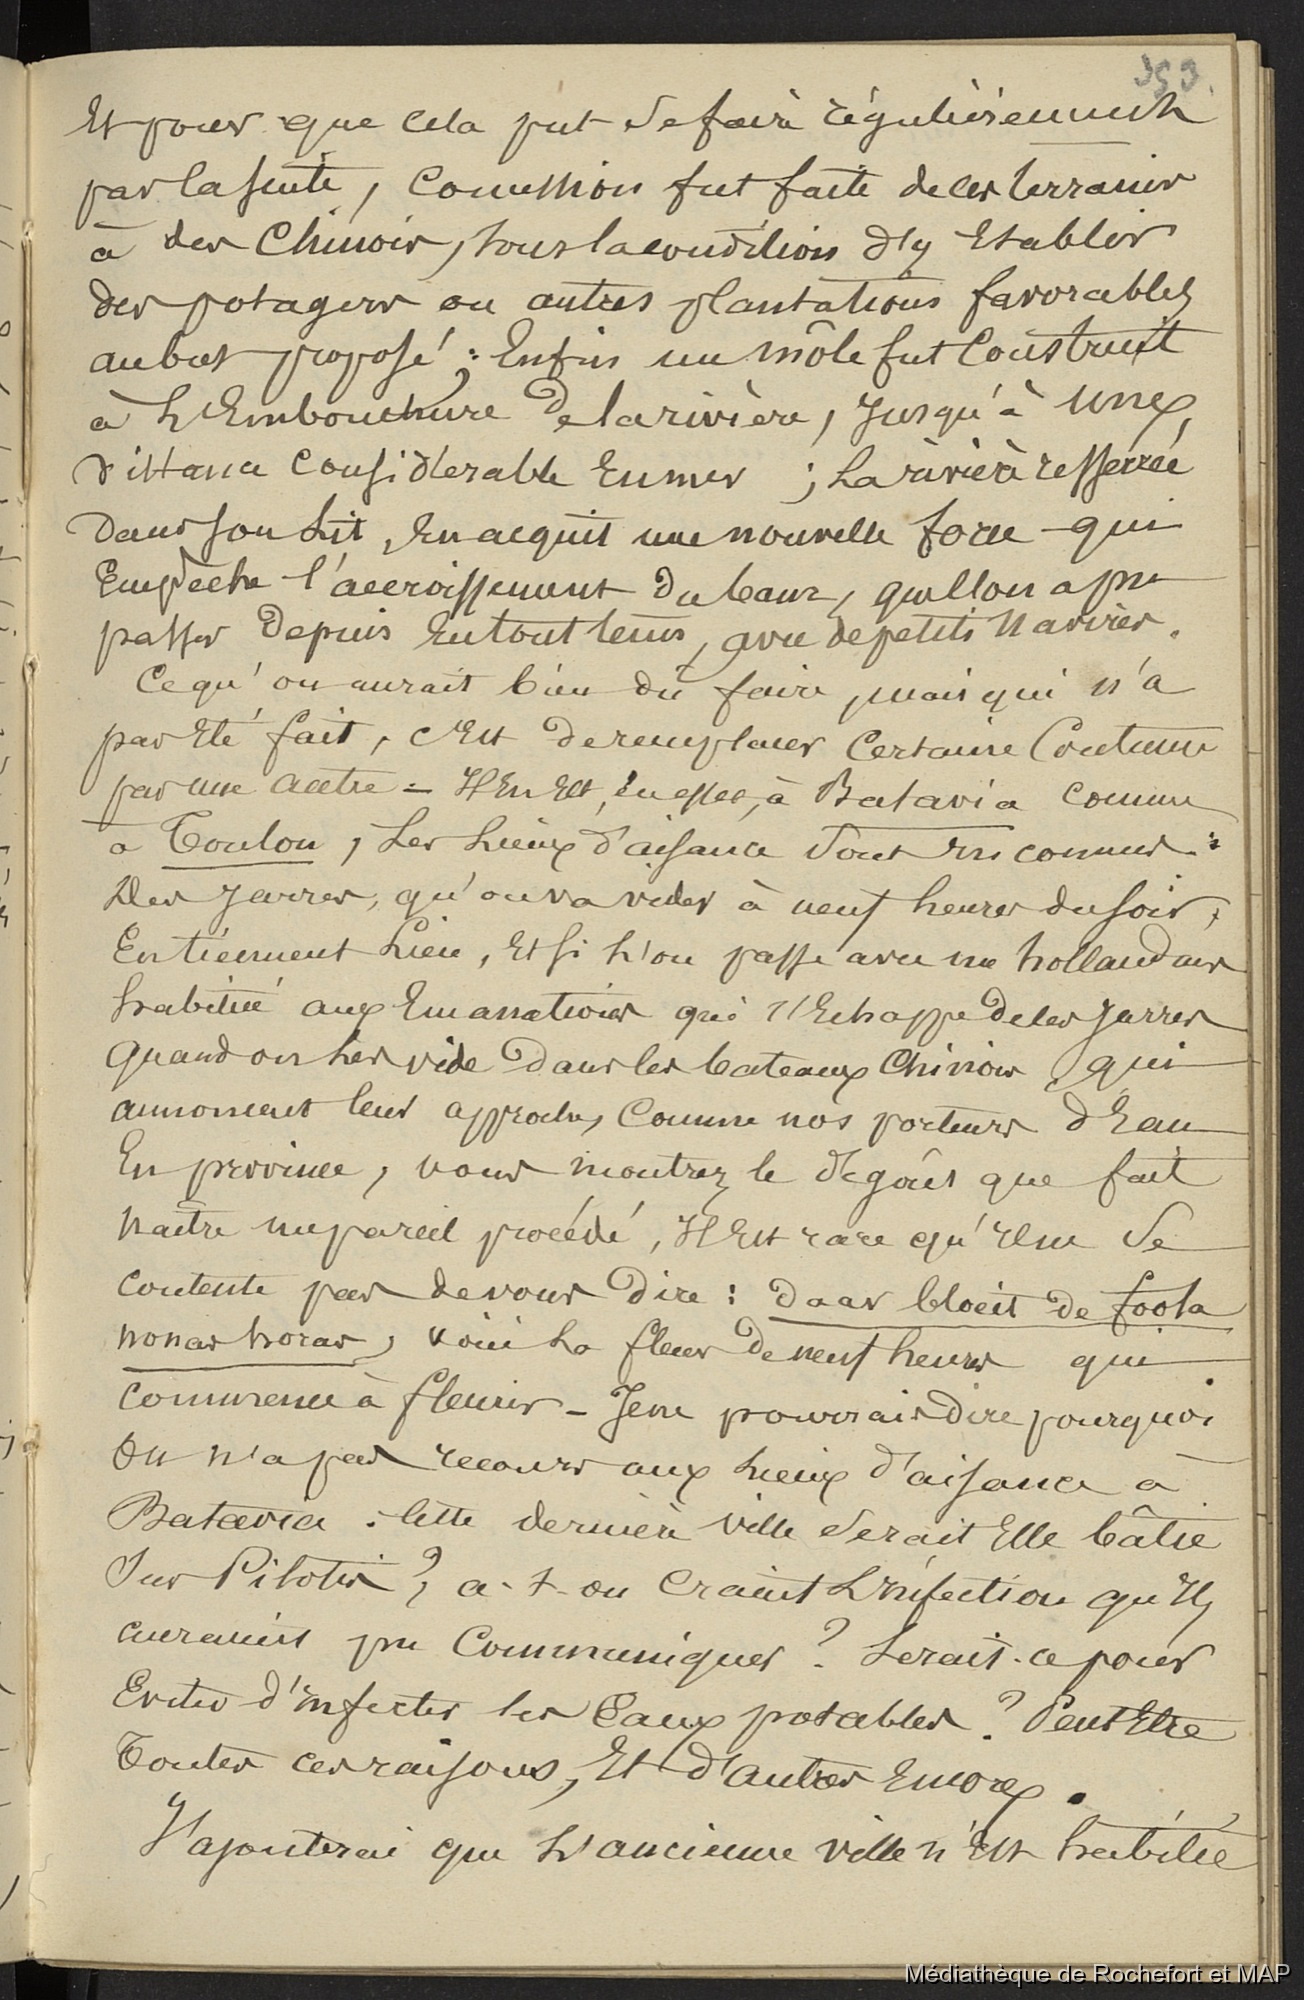 353.
Et pour que cela put se faire régulièrement
par la suite, concession fut faite de ces terrains
à des Chinois, sous la condition d'y Etablir
des potagers ou autres plantations favorables
au but proposé ; Enfin un môle fut Construit
à L'Embouchure de la rivière, Jusqu'à une
distance considérable En mer ; La rivière resserrée
Dans son Lit, En acquit une nouvelle force qui
Empêche l'accroissement du banc, que l'on a pu
passer Depuis En tout tems, avec de petits Navires.
Ce qu'on aurait bien dû faire, mais qui n'a
pas Eté fait, c'Est de remplacer Certaine Coutume
par une autre = Il En Est, En effet, à Batavia comme
à Toulon, Les Lieux d'aisance Sont Inconnus :
Des Jarres, qu'on va vider à neuf heures du soir,
En tiennent Lieu, Et si L'on passe avec un hollandais
habitué aux Emanations qui s'Echappe de ces Jarres
quand on Les vide Dans les bateaux Chinois, qui
annoncent leur approche, Comme nos porteurs d'Eau
En province, vous montrez le dégoût que fait
naître un pareil procédé, Il Est rare qu'Il ne Se
contente pas de vous Dire : Daar bloeit de foola
nonas horas, voici La fleur de neuf heures qui
commence à fleurir - Je ne pourrais Dire pourquoi
On n'a pas recours aux Lieux d'aisance à
Batavia : Cette dernière ville Serait Elle bâtie
Sur Pilotis ? a-t-on Craint L'Infection qu'Ils
auraient pu Communiquer ? Serait-ce pour
Eviter d'Infecter les Eaux potables ? Peut Etre
Toutes ces raisons, Et d'autres Encore.
J'ajouterai que L'ancienne ville n'Est habitée
Médiathèque de Rochefort et MAP